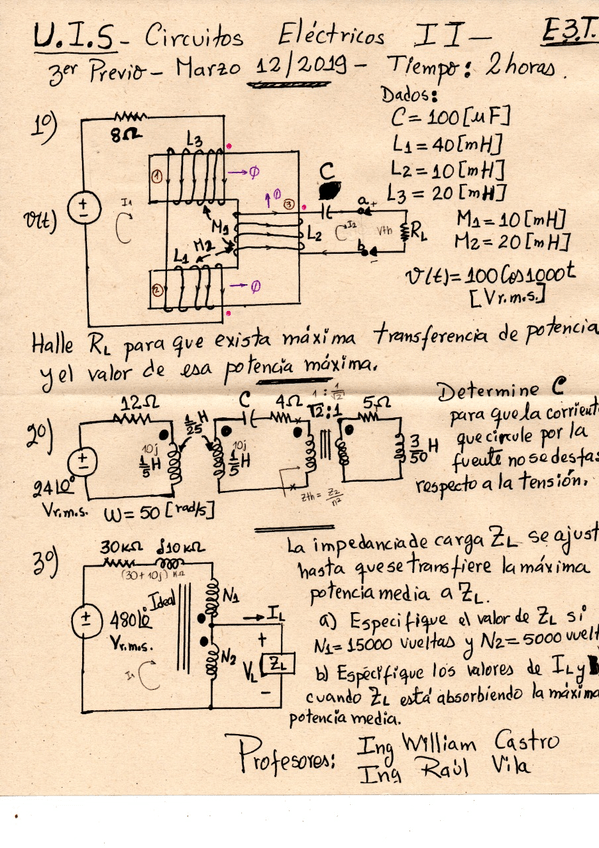 U.I.S - Circuitos Eléctricos II - E3T.
3er Previo - Marzo 12/2019 - Tiempo: 2 horas.
Dados:
1º)
8Ω
L3
C = 100 [μF]
L1 = 40 [mH]
L2 = 10 [mH]
L3 = 20 [mH]
M1 = 10 [mH]
M2 = 20 [mH]
v(t) = 100 Cos 1000t
[Vr.m.s.]
1
→Ø
Ø
3
C
a
+
v(t)
I1
M1
M2
L2
I2
Vth
RL
b
-
L1
2
→Ø
Halle RL para que exista máxima transferencia de potencia
y el valor de esa potencia máxima.
2º)
12Ω
1/25 H
C
4Ω
1 : 1/√2
√2 : 1
5Ω
10j
1/5 H
10j
1/5 H
3/50 H
24⌊0°
Vr.m.s.
W = 50 [rad/s]
Zth = Z2/n²
Determine C
para que la corriente
que circule por la
fuente no se desfas
respecto a la tensión.
3º)
30KΩ
j10KΩ
(30+10j) KΩ
Ideal
N1
480⌊0°
Vr.m.s.
I1
N2
IL
+
VL
-
ZL
La impedancia de carga ZL se ajust
hasta que se transfiere la máxima
potencia media a ZL.
a) Especifique el valor de ZL si
N1 = 15000 vueltas y N2 = 5000 vuelt
b) Especifique los valores de IL y
cuando ZL está absorbiendo la máxima
potencia media.
Profesores: Ing William Castro
Ing Raúl Vila